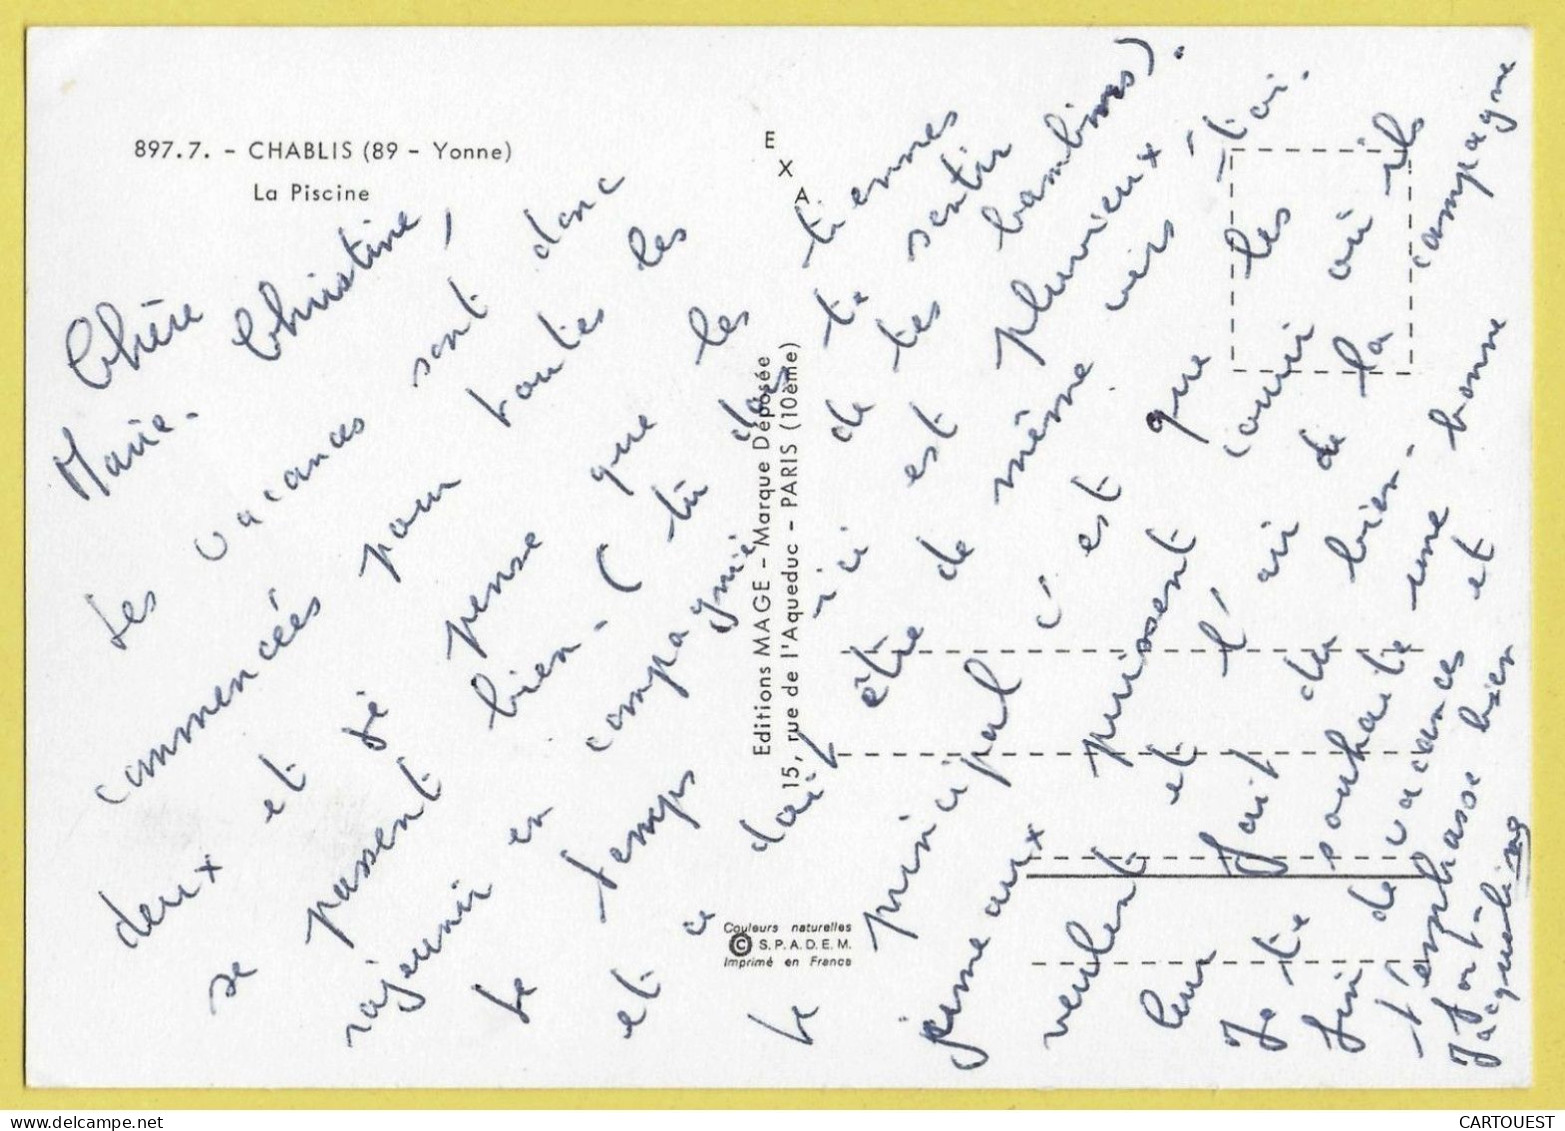 897.7. – CHABLIS (89 – Yonne)
La Piscine
E
X
A
Editions MAGE – Marque Déposée
15, rue de l'Aqueduc – PARIS (10ème)
Couleurs naturelles
© S.P.A.D.E.M.
Imprimé en France
Chère
Marie - Christine,
Les vacances sont donc
commencées pour toutes les
deux et je pense que les tiennes
se passent bien - (tu dois te sentir
rajeunir en compagnie de tes bambines).
Le temps ici est pluvieux
et ce doit être de même vers - toi.
Le principal c'est que les
jumeaux puissent courir où ils
veulent et l'air de la campagne
leur fait du bien -
Je te souhaite une bonne
fin de vacances et
t'embrasse bien
fort -
Jacqueline
CARTOUEST